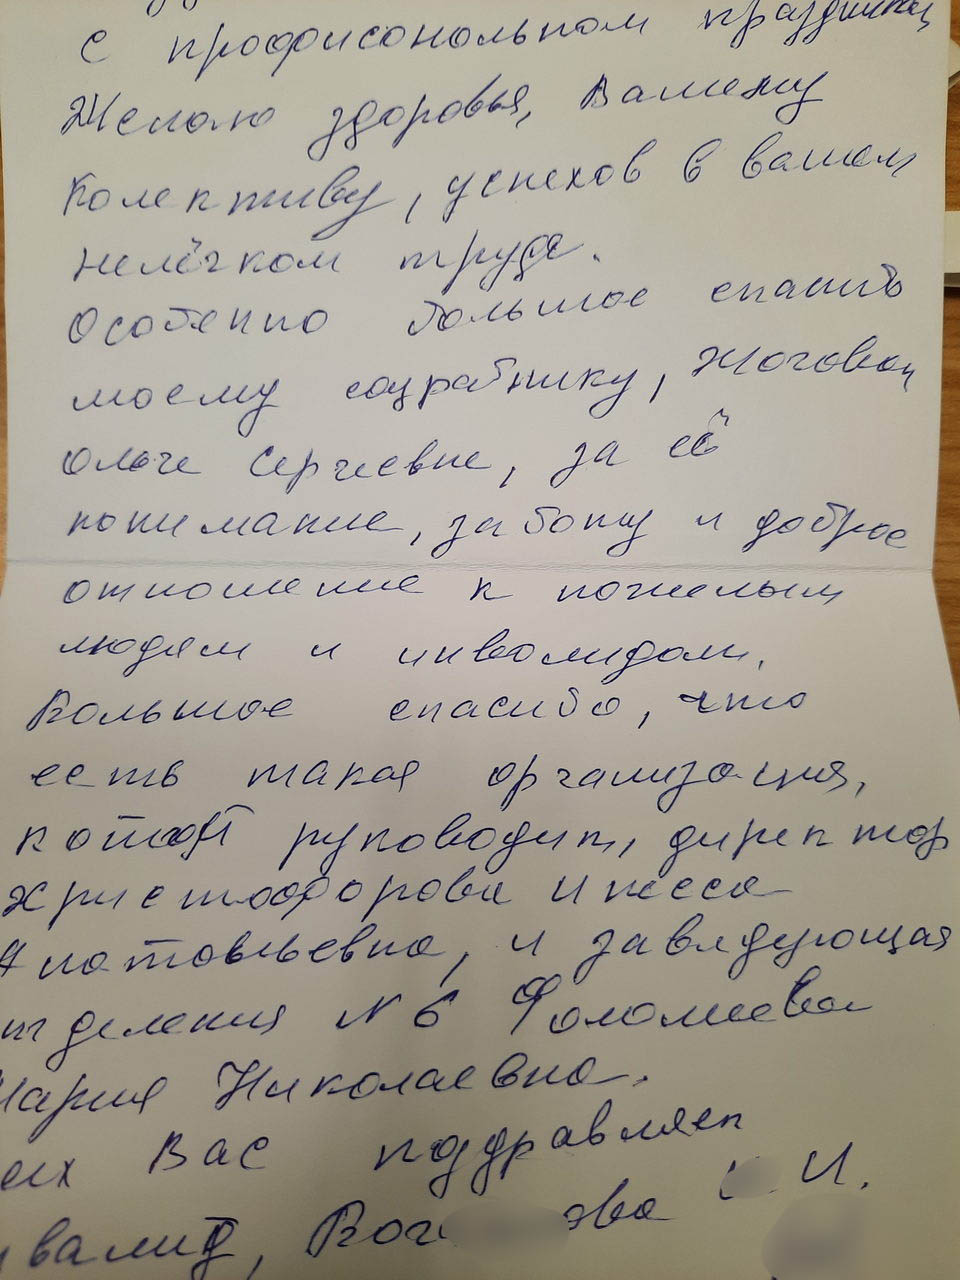 с профисональном праздником
Желаю здоровья, Вашему
колективу, успехов в вашем
нелёгком труде.
Особенно большое спасибо
моему соцработнику, Жоговой
Ольге Сергиевне, за её
понимание, заботу и доброе
отношение к пожелым
людям и инволидам.
Большое спасибо, что
есть такая организация,
руководит, директор
Христофорова Инесса
и заведующая
отделения N 6 Фоломеева
Мария Николаевна.
Вас поздравляет
И.